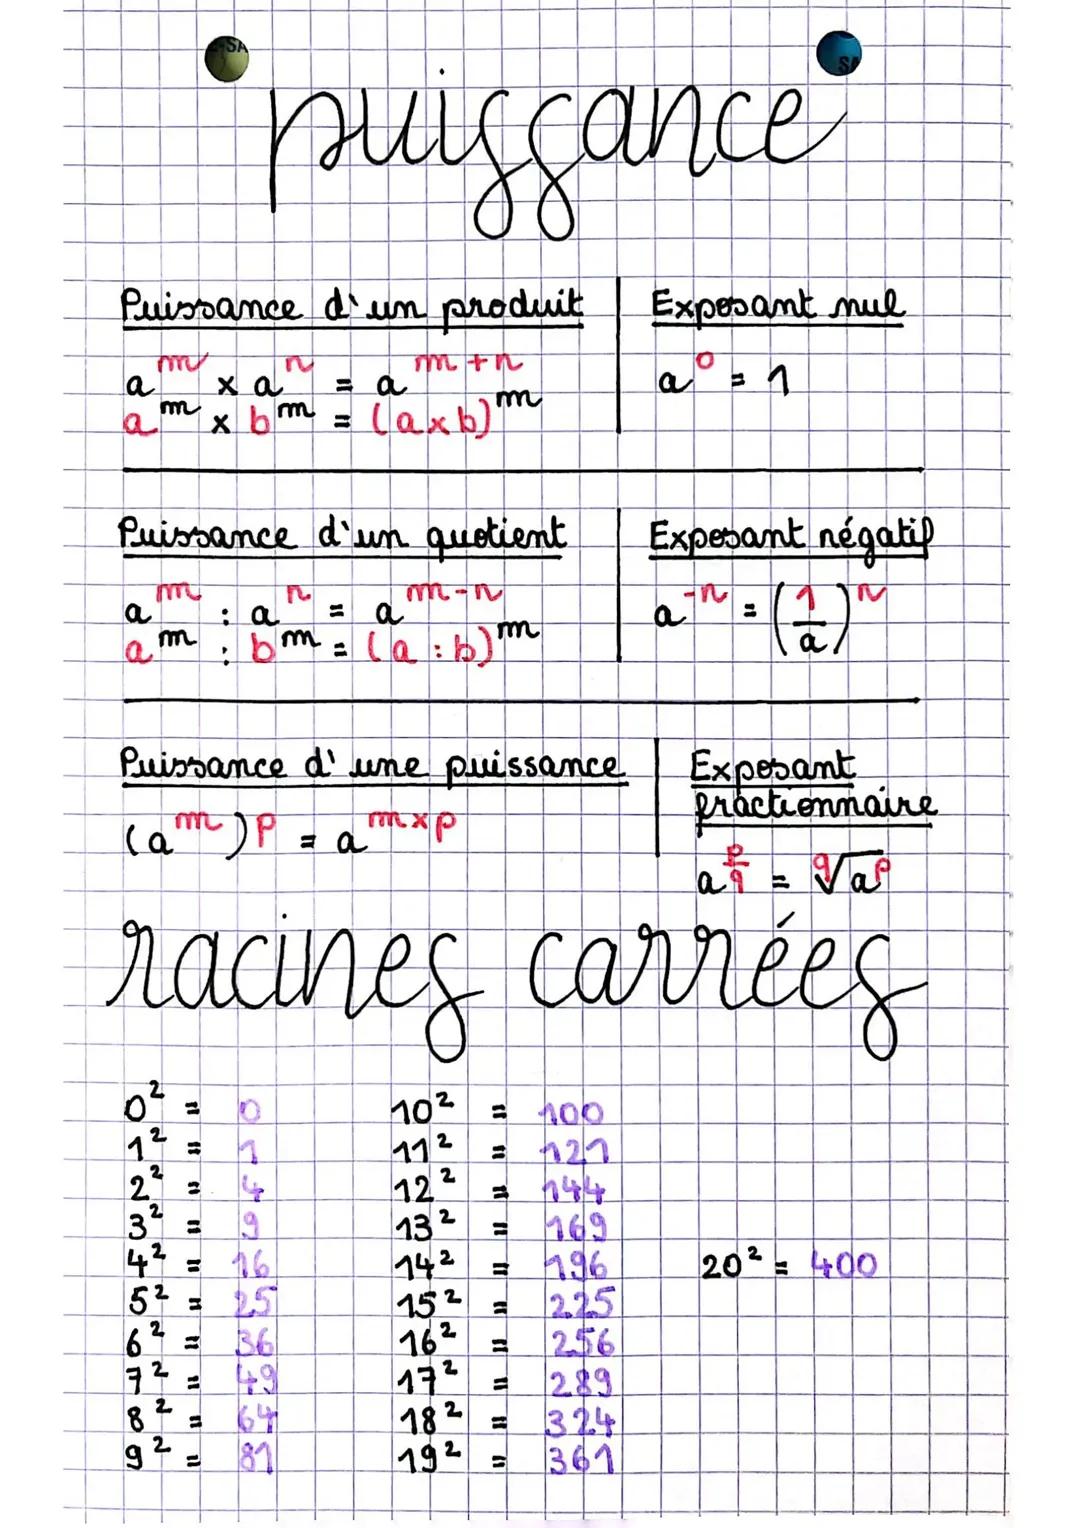 puissance
Puissance d'un produit
aᵐ x aⁿ = aᵐ⁺ⁿ
aᵐ x bᵐ = (axb)ᵐ
Exposant nul
a⁰ = 1
Puissance d'un quotient
aᵐ : aⁿ = aᵐ⁻ⁿ
aᵐ : bᵐ = (a:b)ᵐ
Exposant négatif
a⁻ⁿ = (1/a)ⁿ
Puissance d'une puissance
(aᵐ)ᵖ = aᵐˣᵖ
Exposant
fractionnaire
a^(p/q) = ᑫ√aᵖ
racines carrées
0² = 0
1² = 1
2² = 4
3² = 9
4² = 16
5² = 25
6² = 36
7² = 49
8² = 64
9² = 81
10² = 100
11² = 121
12² = 144
13² = 169
14² = 196
15² = 225
16² = 256
17² = 289
18² = 324
19² = 361
20² = 400